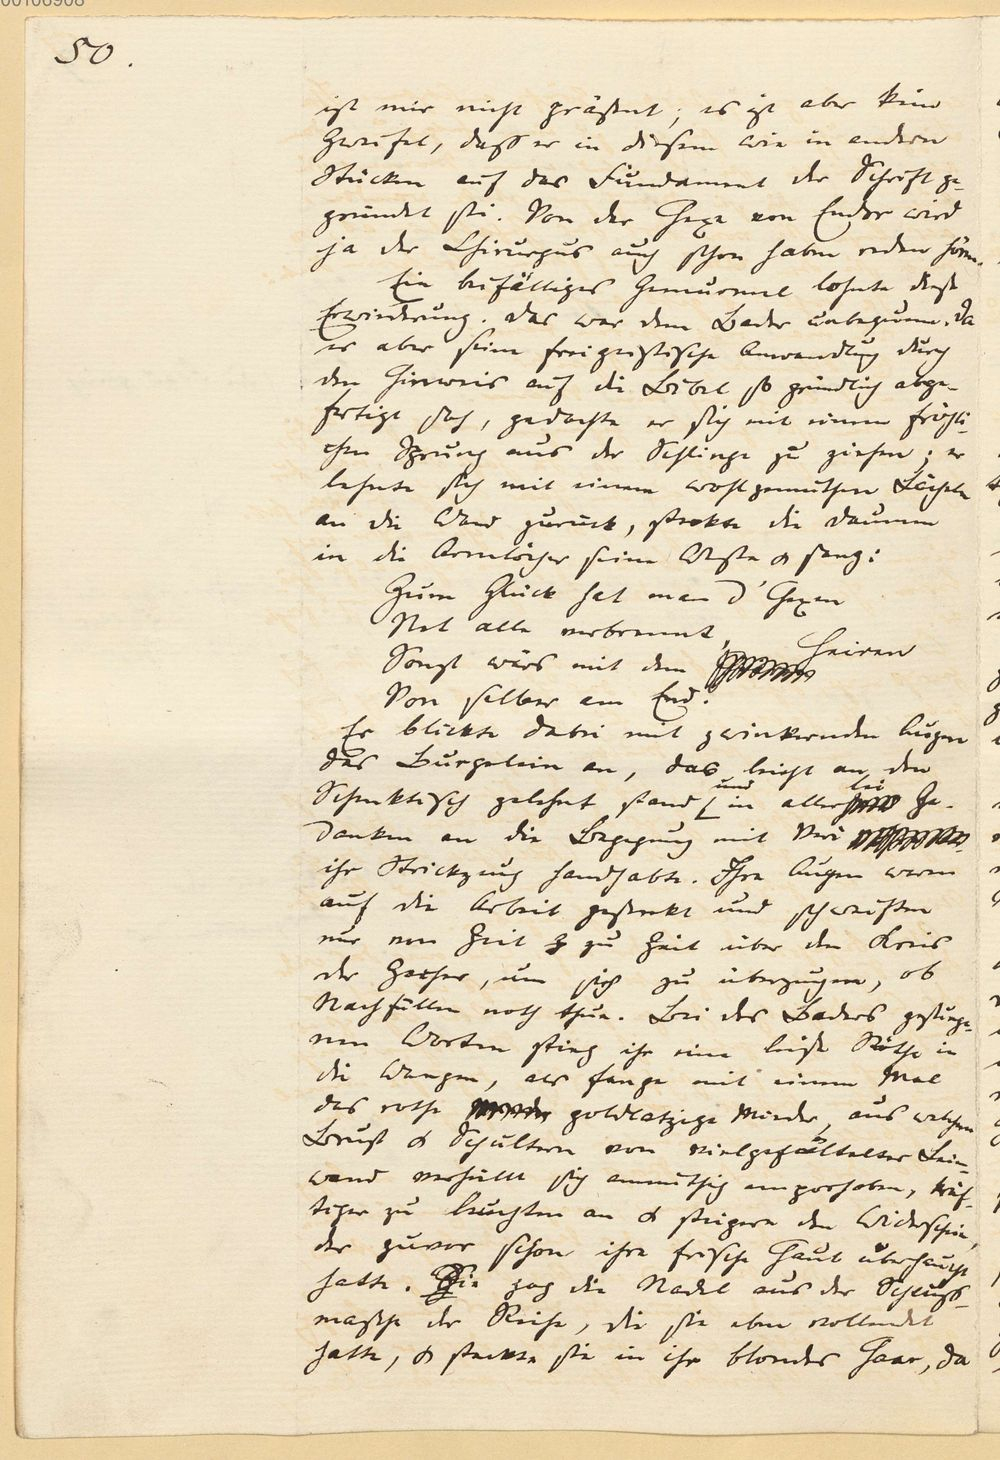 00106908
50.
ist mir nicht präsent; es ist aber kein
Zweifel, daß er in diesem wie in andern
Stücken auf das Fundament der Schrift ge-
gründet sei. Von der Hexe von Endor wird
ja der Chirurgus auch schon haben reden hören.
Ein beifälliges Gemurmel lohnte diese
Erwiederung. Das war dem Bader unbequem. Da
er aber seine freigeistische Anwandlung durch
den Hinweis auf die Bibel so gründlich abge-
fertigt sah, gedachte er sich mit einem fröhli-
chen Sprung aus der Schlinge zu ziehen; er
lehnte sich mit einem wohlgemuthen Lächeln
an die Wand zurück, steckte die Daumen
in die Armlöcher seiner Weste & sang:
Zum Glück hat man d' Hexen
Net alle verbrennt,
Sonst wärs mit dem Heiren
Von selber am End.
Er blickte dabei mit zwinkernden Augen
das Burgelein an, das leicht an den
Schenktisch gelehnt stand und in allerlei Ge-
danken an die Begegnung mit Veri
ihr Strickzeug handhabte. Ihre Augen waren
auf die Arbeit gesenkt und schweiften
nur von Zeit zu Zeit über den Kreis
der Zecher, um sich zu überzeugen, ob
Nachfüllen noth thue. Bei des Baders gesunge-
nen Worten stieg ihr eine leise Röthe in
die Wangen, als fange mit einem Mal
das rothe goldlatzige Mieder, aus welchem
Brust & Schultern von vielgefältelter Lein-
wand verhüllt sich anmuthig emporhoben, kräf-
tiger zu leuchten an & steigere den Widerschein,
der zuvor schon ihre frische Haut überhaucht
hatte. Sie zog die Nadel aus der Schluß-
masche der Reihe, die sie eben vollendet
hatte, & steckte sie in ihr blondes Haar, da